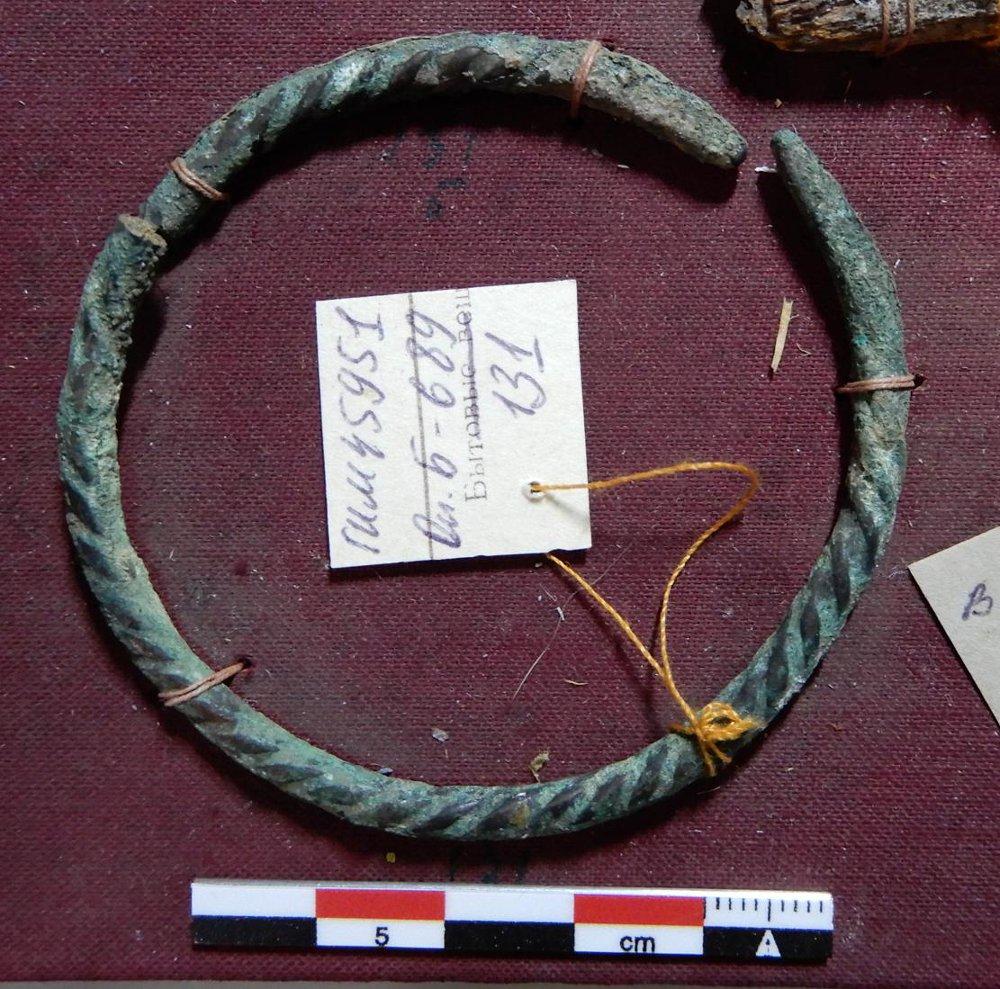 ГИМ 45951
Оп. Б-689
Бытовые вещ
131
В
5
cm